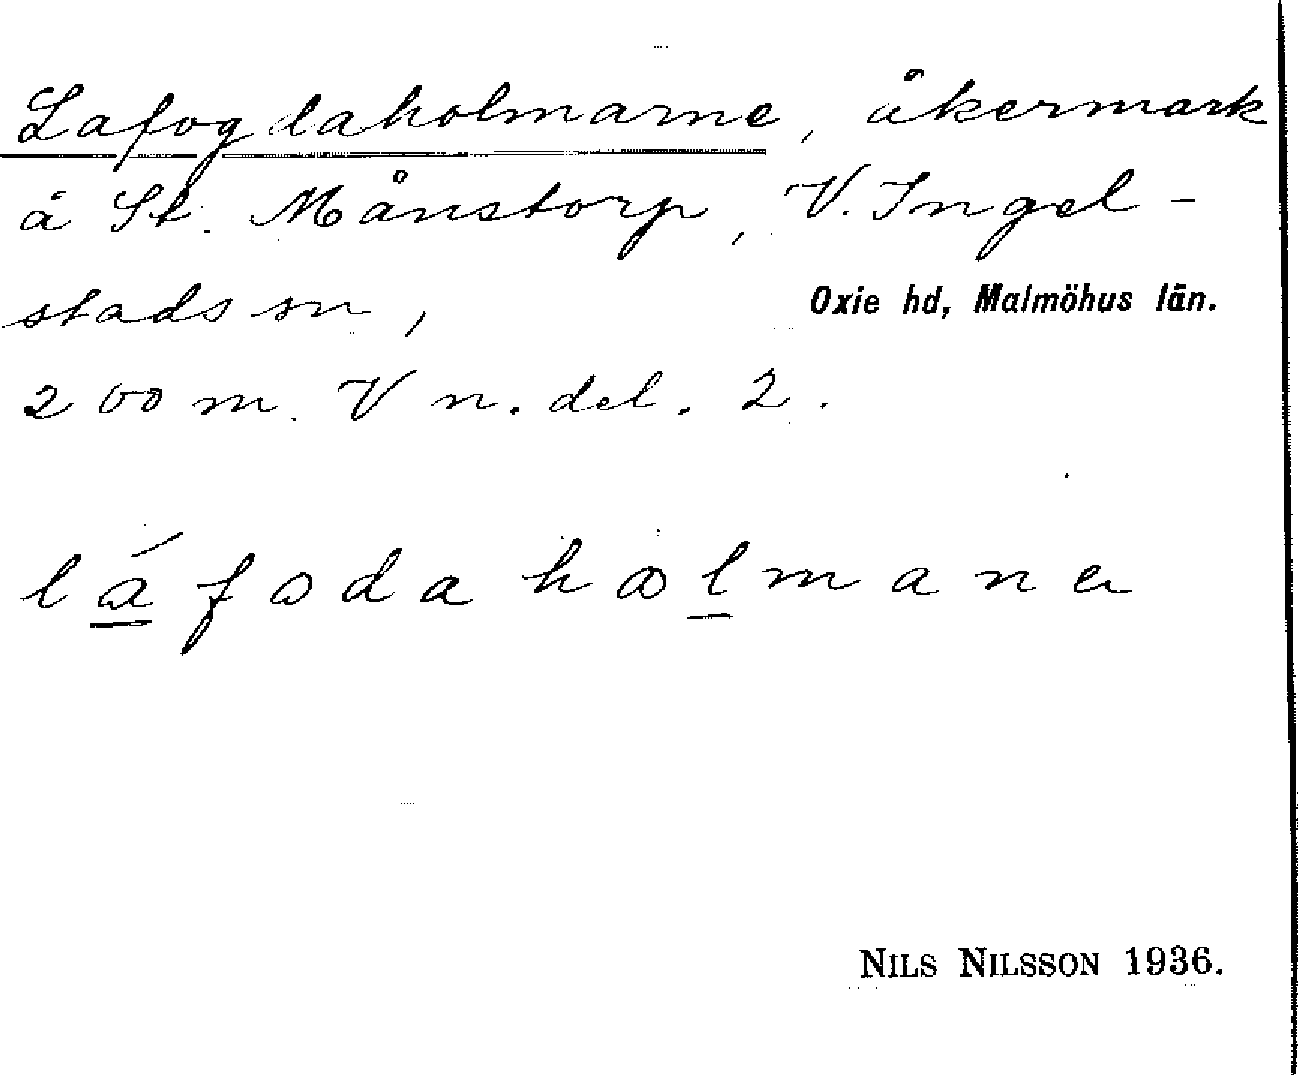 Lafogdaholmarne, åkermark
å St. Månstorp, V. Ingel-
stads sn, Oxie hd, Malmöhus län.
200 m. V n. del. 2.
láfodaholmana
NILS NILSSON 1936.